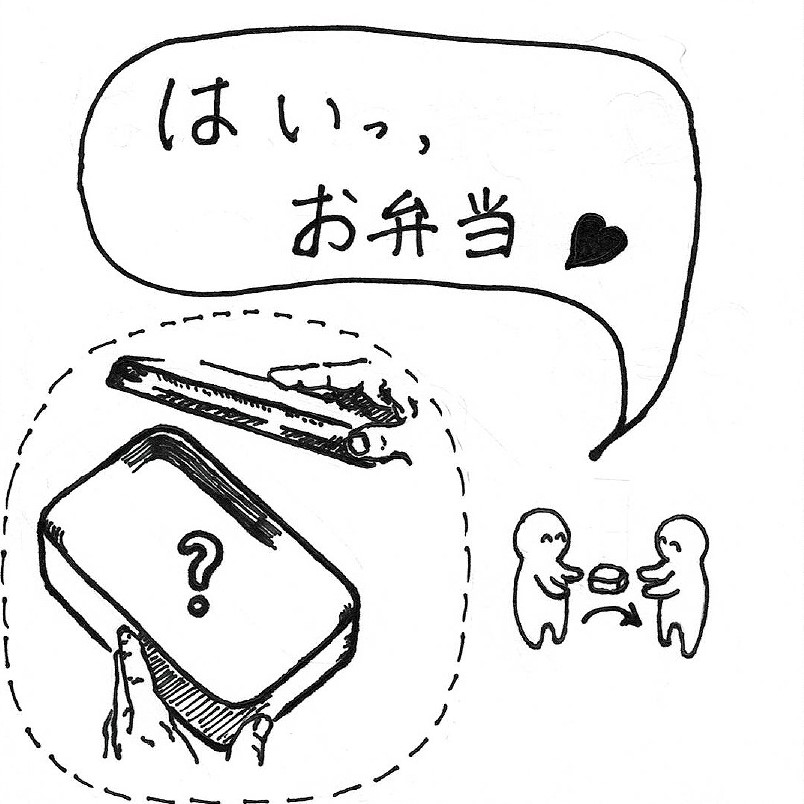 はいっ,
お弁当♥
?